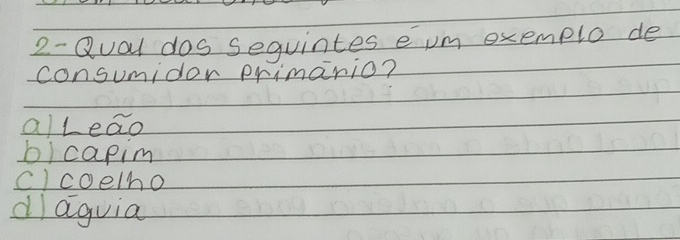 2-Qual dos seguintes é um exemplo de
consumidor primário?
a) Leão
b) capim
c) coelho
d) águia